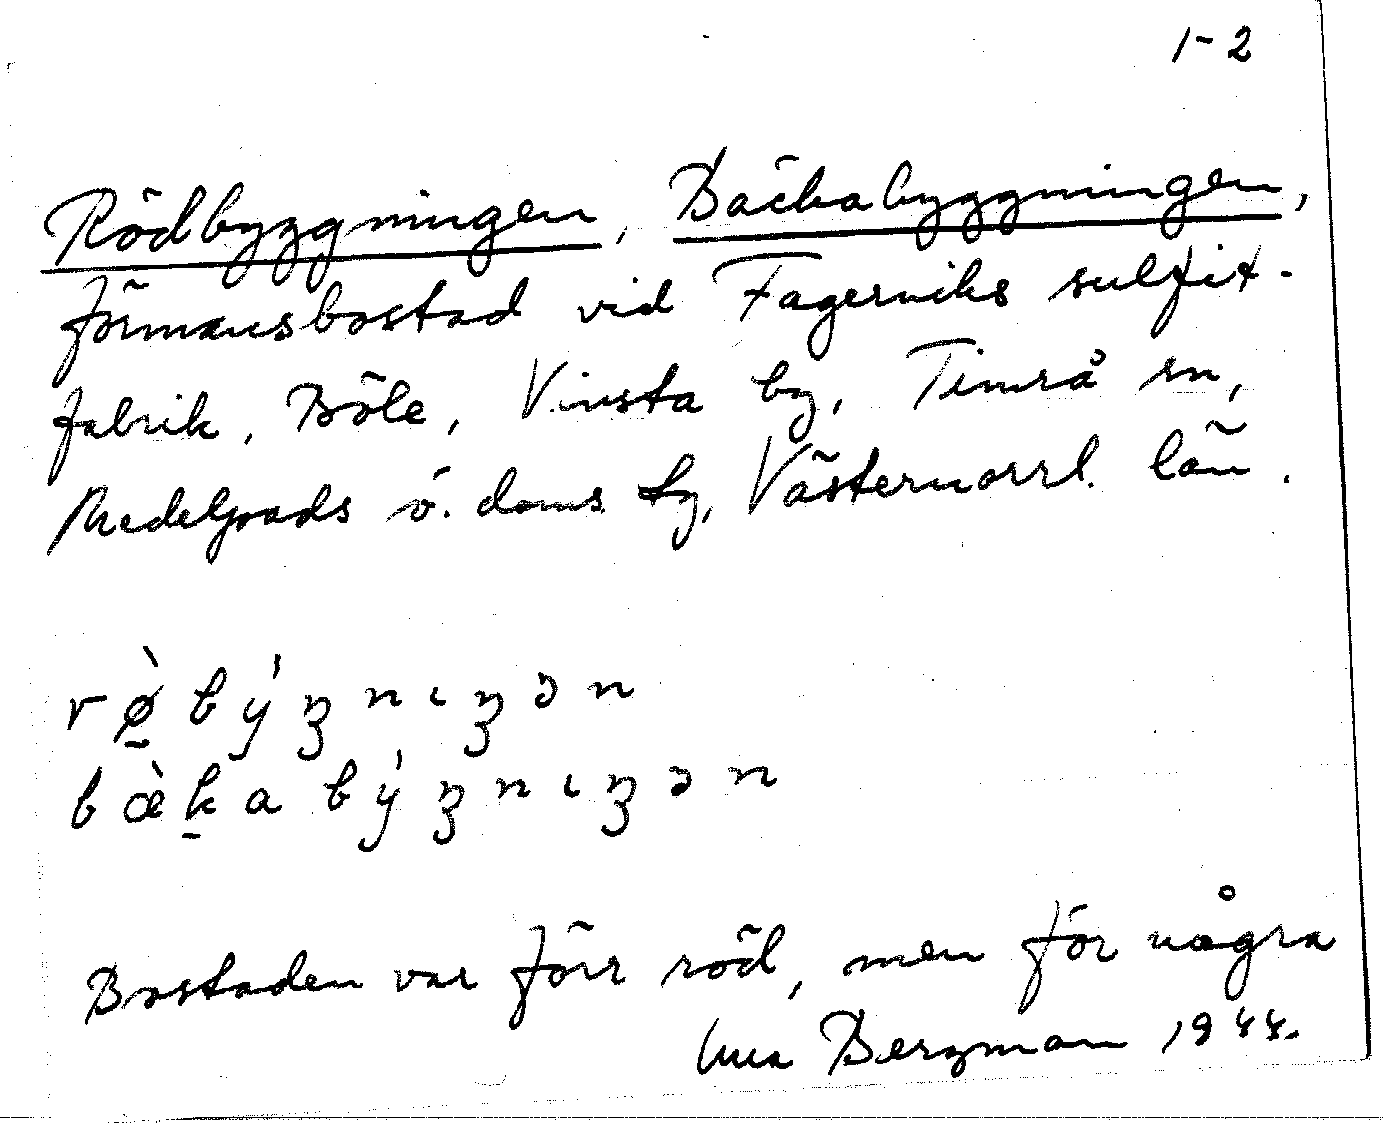 1-2
Rödbyggningen, Bäckabyggningen,
förmansbostad vid Fagerviks sulfit-
fabrik, Böle, Vivsta by, Timrå sn,
Medelpads ö. doms. tg, Västernorrl. län.
rø̠̀ býʒnɩʒən
bæ̀k̠a býʒnɩʒən
Bostaden var förr röd, men för några
Bergman 1944.